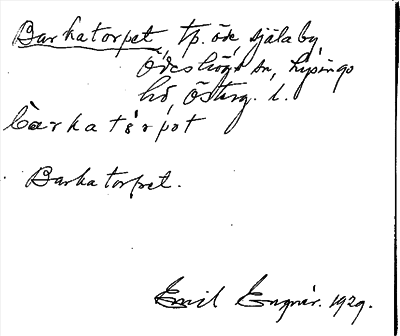 Barkatorpet, tp. öde själaby
Ödeshögs sn, Lysings
hd, Österg. l.
bàrkatòrpot
Barkatorpet.
Emil Engnér. 1929.